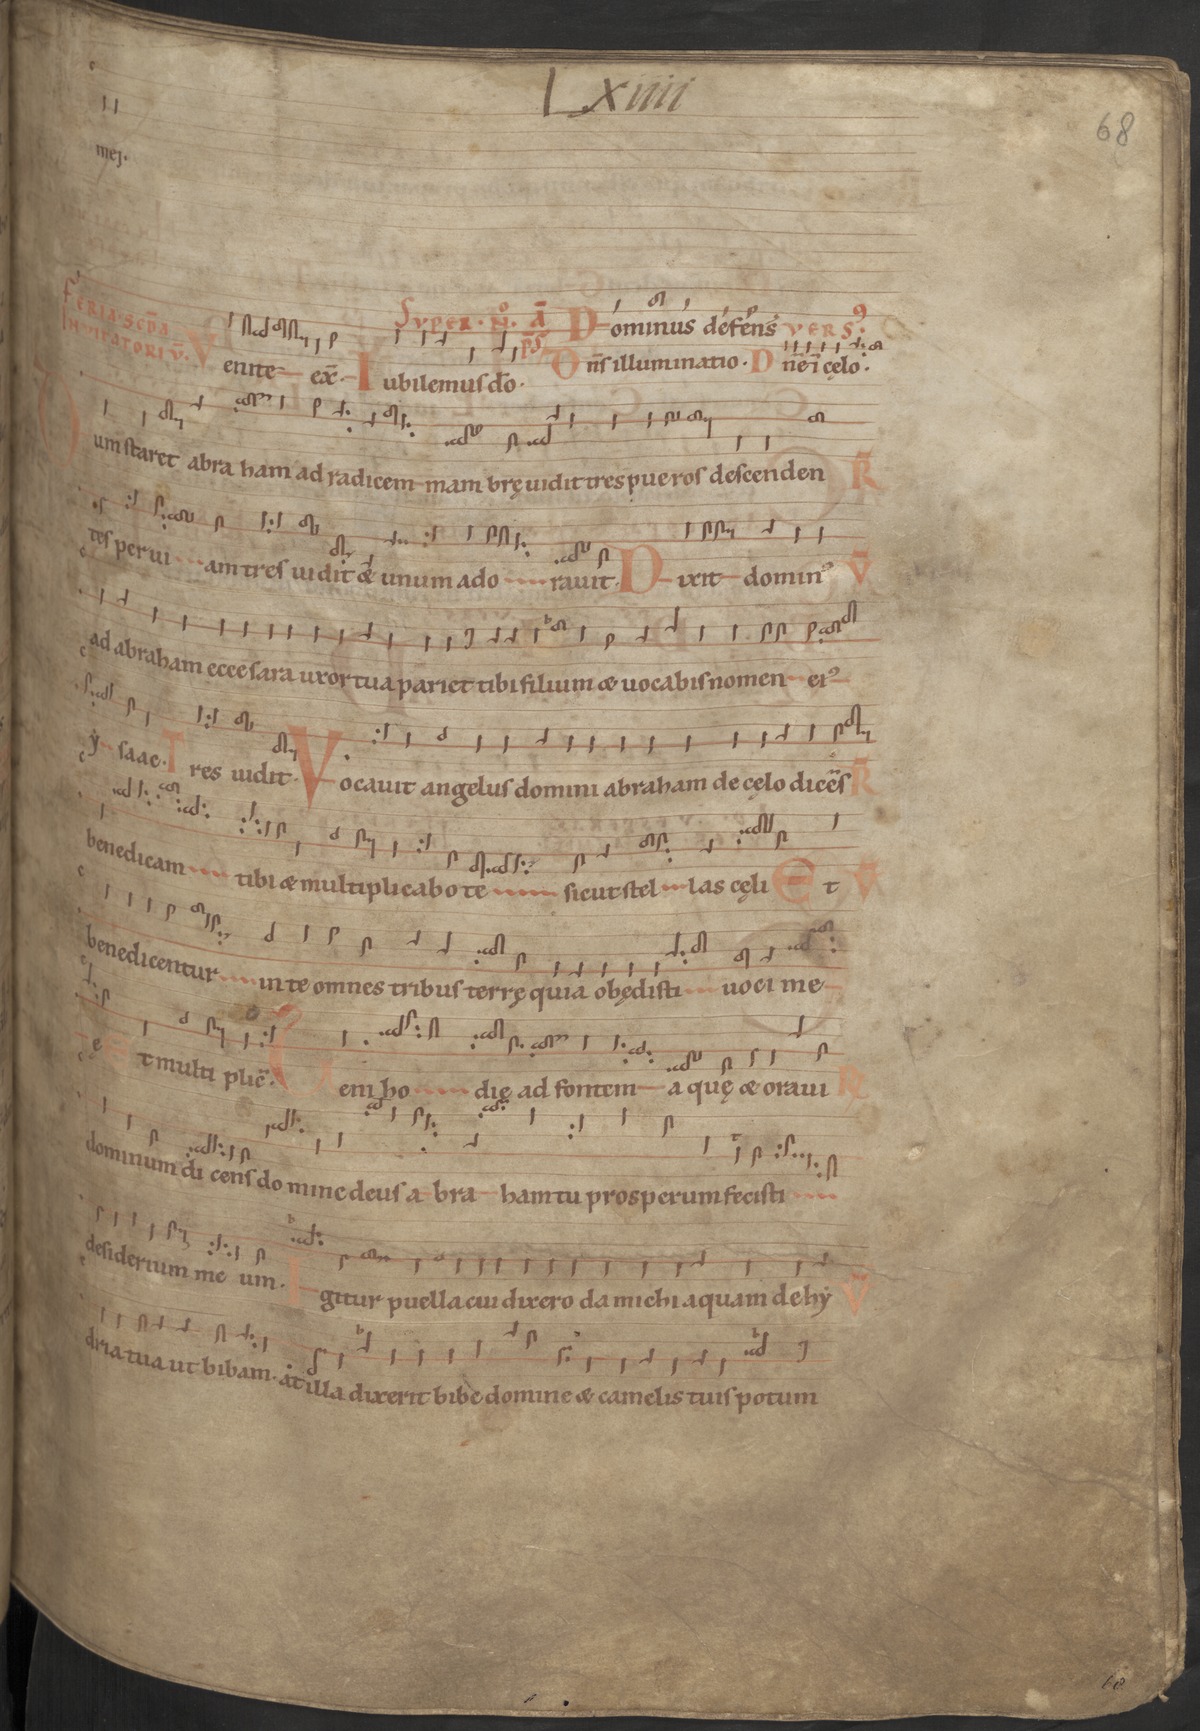 Lxiiii
68
mej.
FERIA·SCDA SVPER·N̊·Ā Dominus defens̄ VERS:
INVITATORIV̄. Venite ex̄. Iubilemus dn̄o. PS̄ Dn̄s illuminatio. D n̄e ī cęlo.
um staret abra ham ad radicem mam brę uidit tres pueros descenden R̄
tes per ui am tres uidit & unum ado rauit. Dixit domin9 V̄
ad abraham ecce sara uxor tua pariet tibi filium & uocabis nomen ei9
ẏ saac. Tres uidit. Vocauit angelus domini abraham de cęlo dicēs R̄
benedicam tibi & multiplicabo te sicut stel las cęli Et V̄
benedicentur in te omnes tribus terrę quia obędisti uoci me
ę Et multi plic̄. Veni ho die ad fontem a quę & oraui R̄
dominum di cens domine deus a bra ham tu prosperum fecisti
desiderium me um. Igitur puella cui dixero da michi aquam de hẏ V̄
dria tua ut bibam. at illa dixerit bibe domine & camelis tuis potum